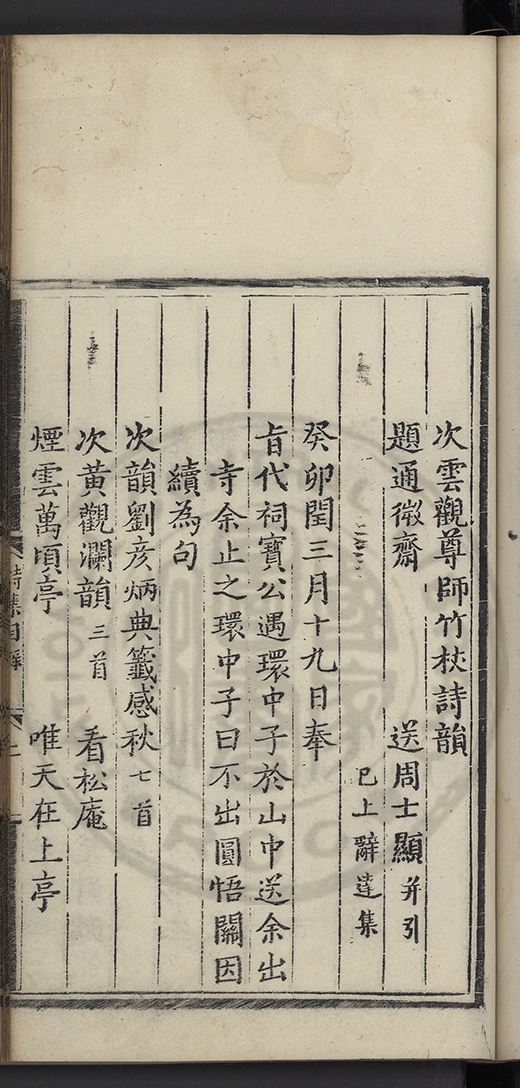 次雲觀尊師竹杖詩韻
題通微齋 送周士顯并引
已上辭達集
癸卯閏三月十九日奉
旨代祠寶公遇環中子於山中送余出
寺余止之環中子曰不出圓悟關因
續為句
次韻劉彥炳典籤感秋七首
次黃觀瀾韻三首 看松庵
煙雲萬頃亭 唯天在上亭